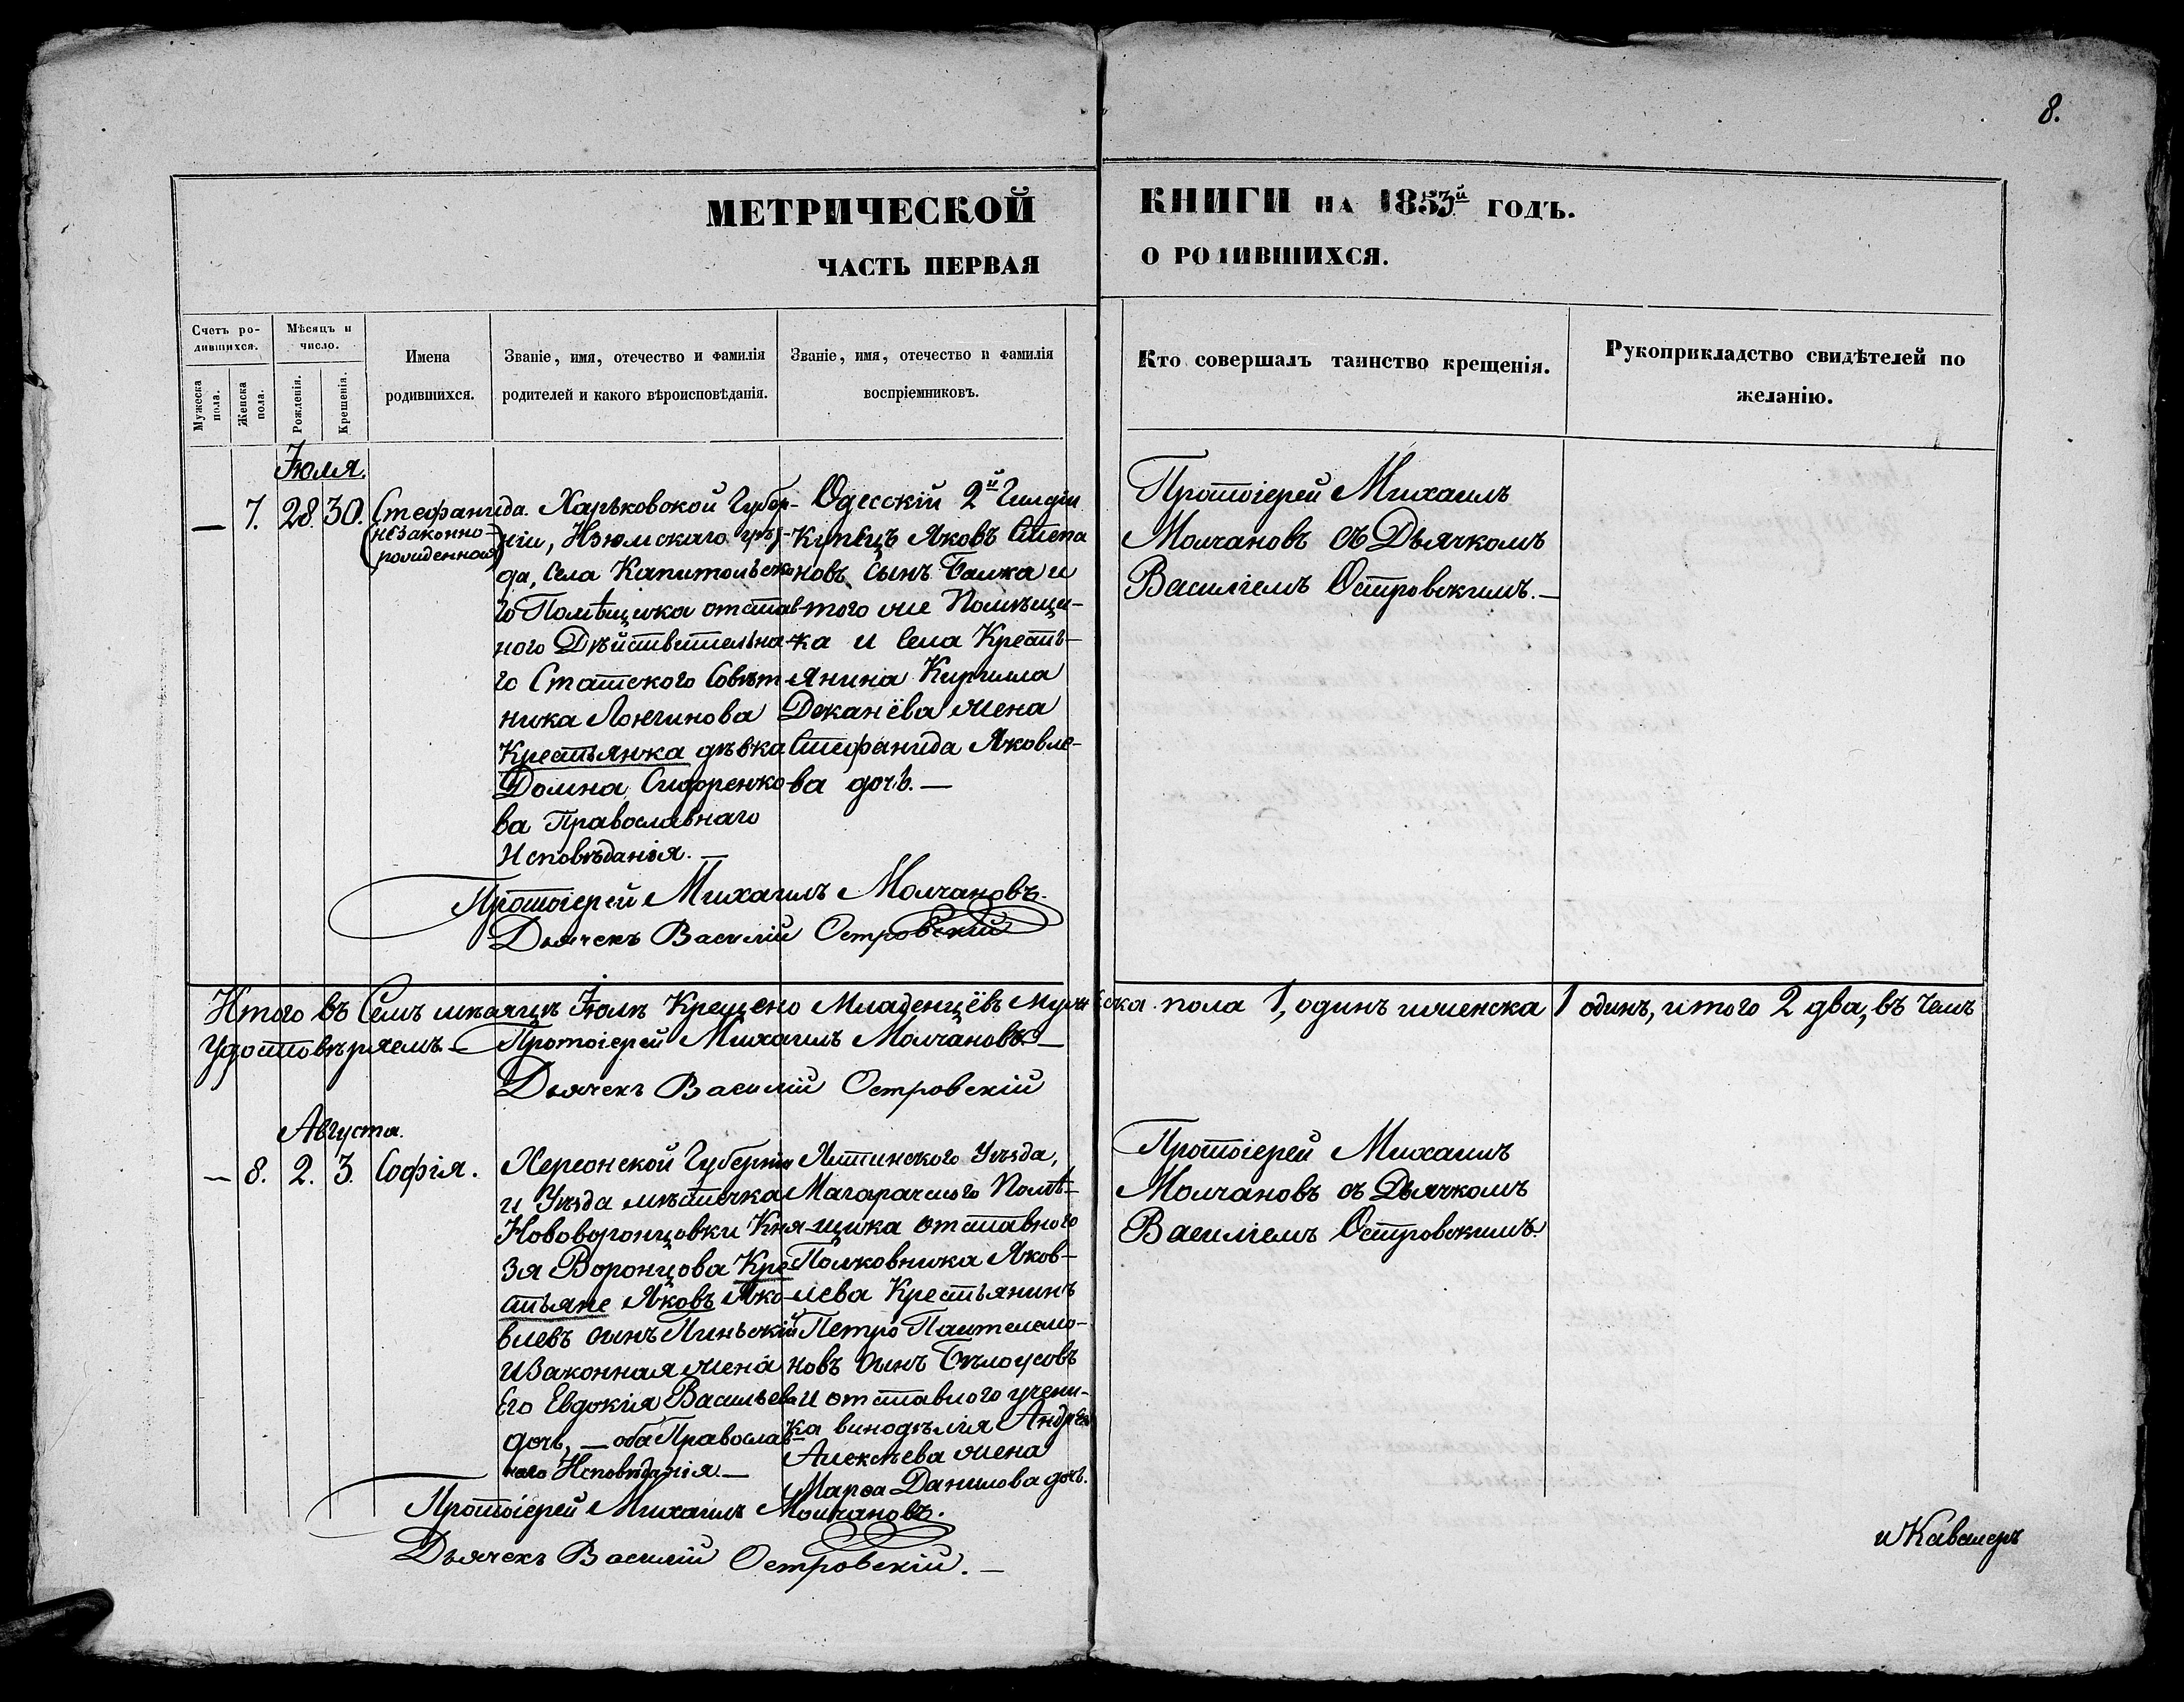 8.
МЕТРИЧЕСКОЙ КНИГИ НА 1853й ГОДЪ.
ЧАСТЬ ПЕРВАЯ О РОДИВШИХСЯ.
Счетъ ро-
дившихся.
Мужеска
пола.
Женска
пола.
Мѣсяцъ и
число.
Рожденія.
Крещенія.
Имена
родившихся.
Званіе, имя, отечество и фамилія
родителей и какого вѣроисповѣданія.
Званіе, имя, отечество и фамилія
воспріемниковъ.
Кто совершалъ таинство крещенія.
Рукоприкладство свидѣтелей по
желанію.
Іюля.
— 7. 28. 30. Стефанида.
(незаконно-
рожденная)
Харьковской Губер-
ніи, Изюмскаго уѣз-
да, Села Капитольско
го Помѣщика отстав-
ного Дѣйствительна-
го Статского Совѣт-
ника Лонгинова
Крестьянка дѣвка
Домна Сидоренко-
ва Православнаго
Исповѣданія. —
Одесскій 2й Гилдіи
Купецъ Яковъ Степа
новъ сынъ Балка и
того же Помѣщи-
ка и Села Кресть-
янина Кирилла
Деканёва жена
Стефанида Яковле-
ва дочь. —
Протоіерей Михаилъ
Молчановъ съ Дьячкомъ
Василіемъ Островскимъ. —
Протоіерей Михаилъ Молчановъ.
Дьячекъ Василій Островскій
Итого въ Семъ мѣсяцѣ Іюлѣ Крещено Младенцёвъ мужеска пола 1, одинъ и женска 1 одинъ, итого 2 два, въ чемъ
удостовѣряемъ. — Протоіерей Михаилъ Молчановъ. —
Дьячекъ Василій Островскій
Августа.
— 8. 2. 3. Софія.
Херсонской Губерніи
и Уѣзда мѣстечка
Нововоронцовки Кня-
зя Воронцова Кре
стьяне Яковъ Яко-
влевъ сынъ Пиньскій
и Законная жена
Его Евдокія Васильева
дочь, — оба Православ
наго Исповѣданія —
Ялтинского Уѣзда,
Магарачского Помѣ-
щика отставного
Полковника Яков-
лева Крестьянинъ
Петро Пантелемо-
новъ сынъ Бѣлоусовъ
и отставного учени-
ка винодѣлия Андрея
Алексѣева жена
Марѳа Данилова дочь.
Протоіерей Михаилъ
Молчановъ съ Дьячкомъ
Василіемъ Островскимъ.
Протоіерей Михаилъ Молчановъ.
Дьячекъ Василій Островскій. —
и Кавалеръ